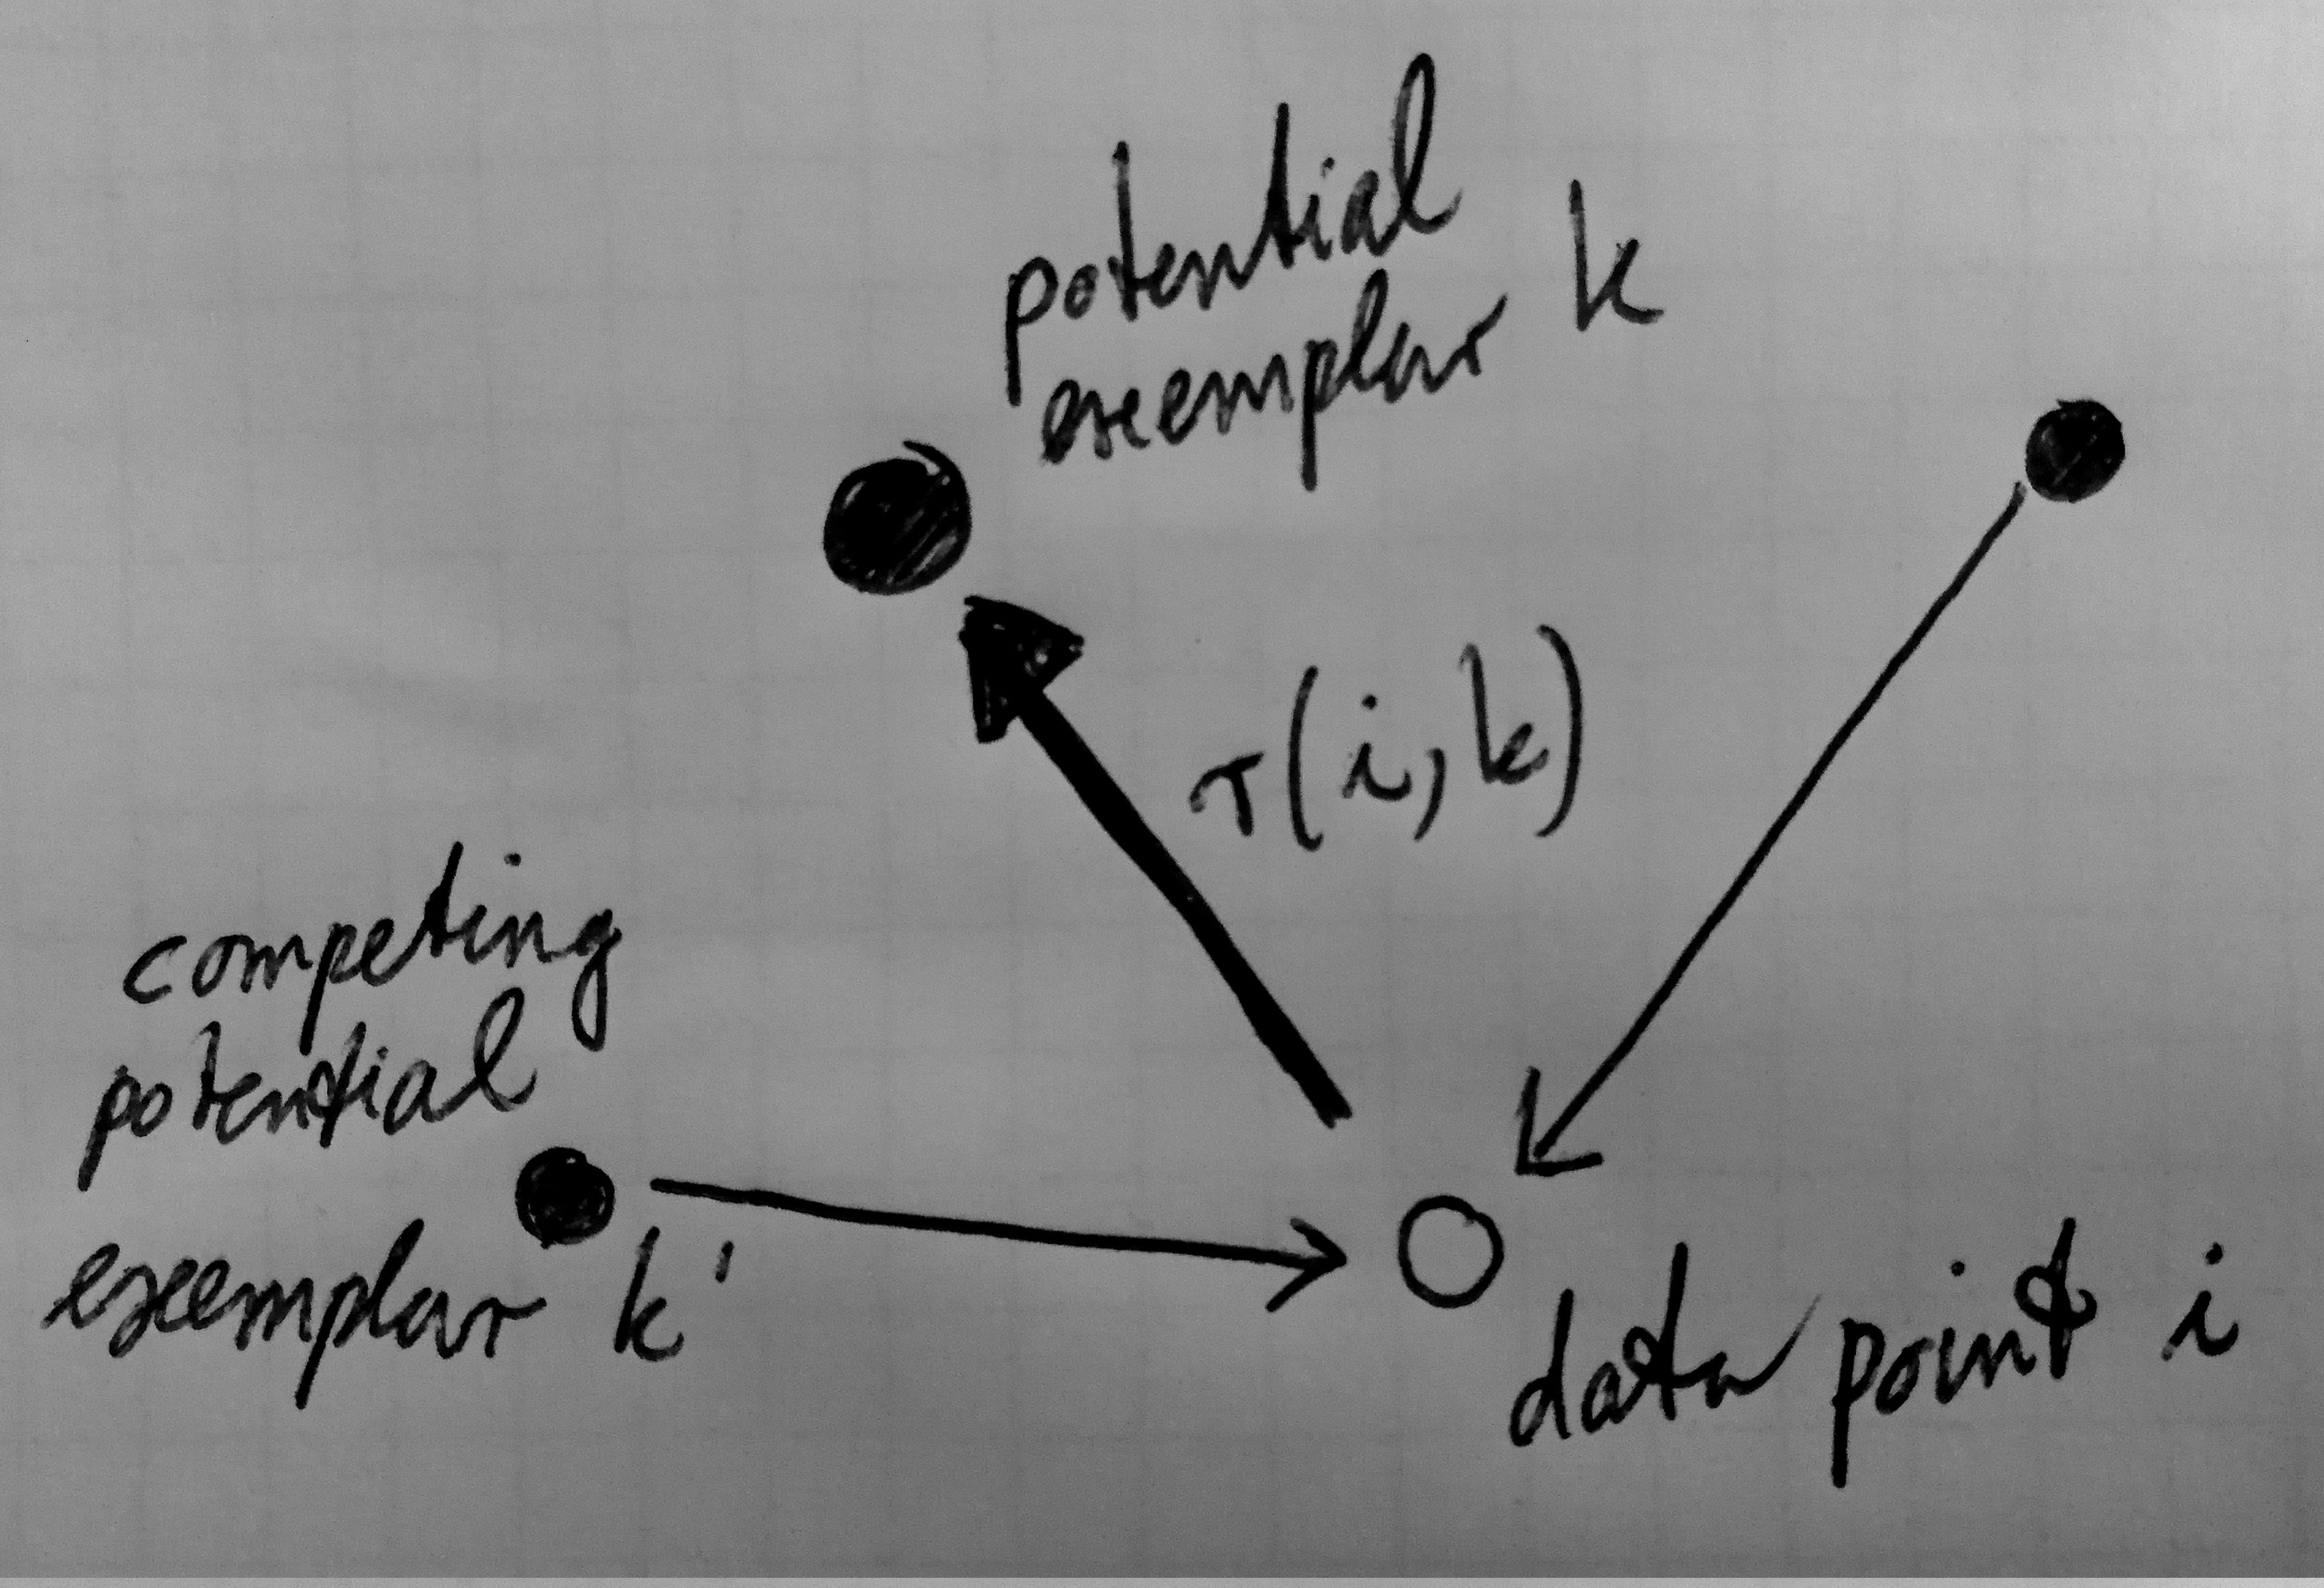 potential
exemplar k
r(i,k)
competing
potential
exemplar k'
data point i